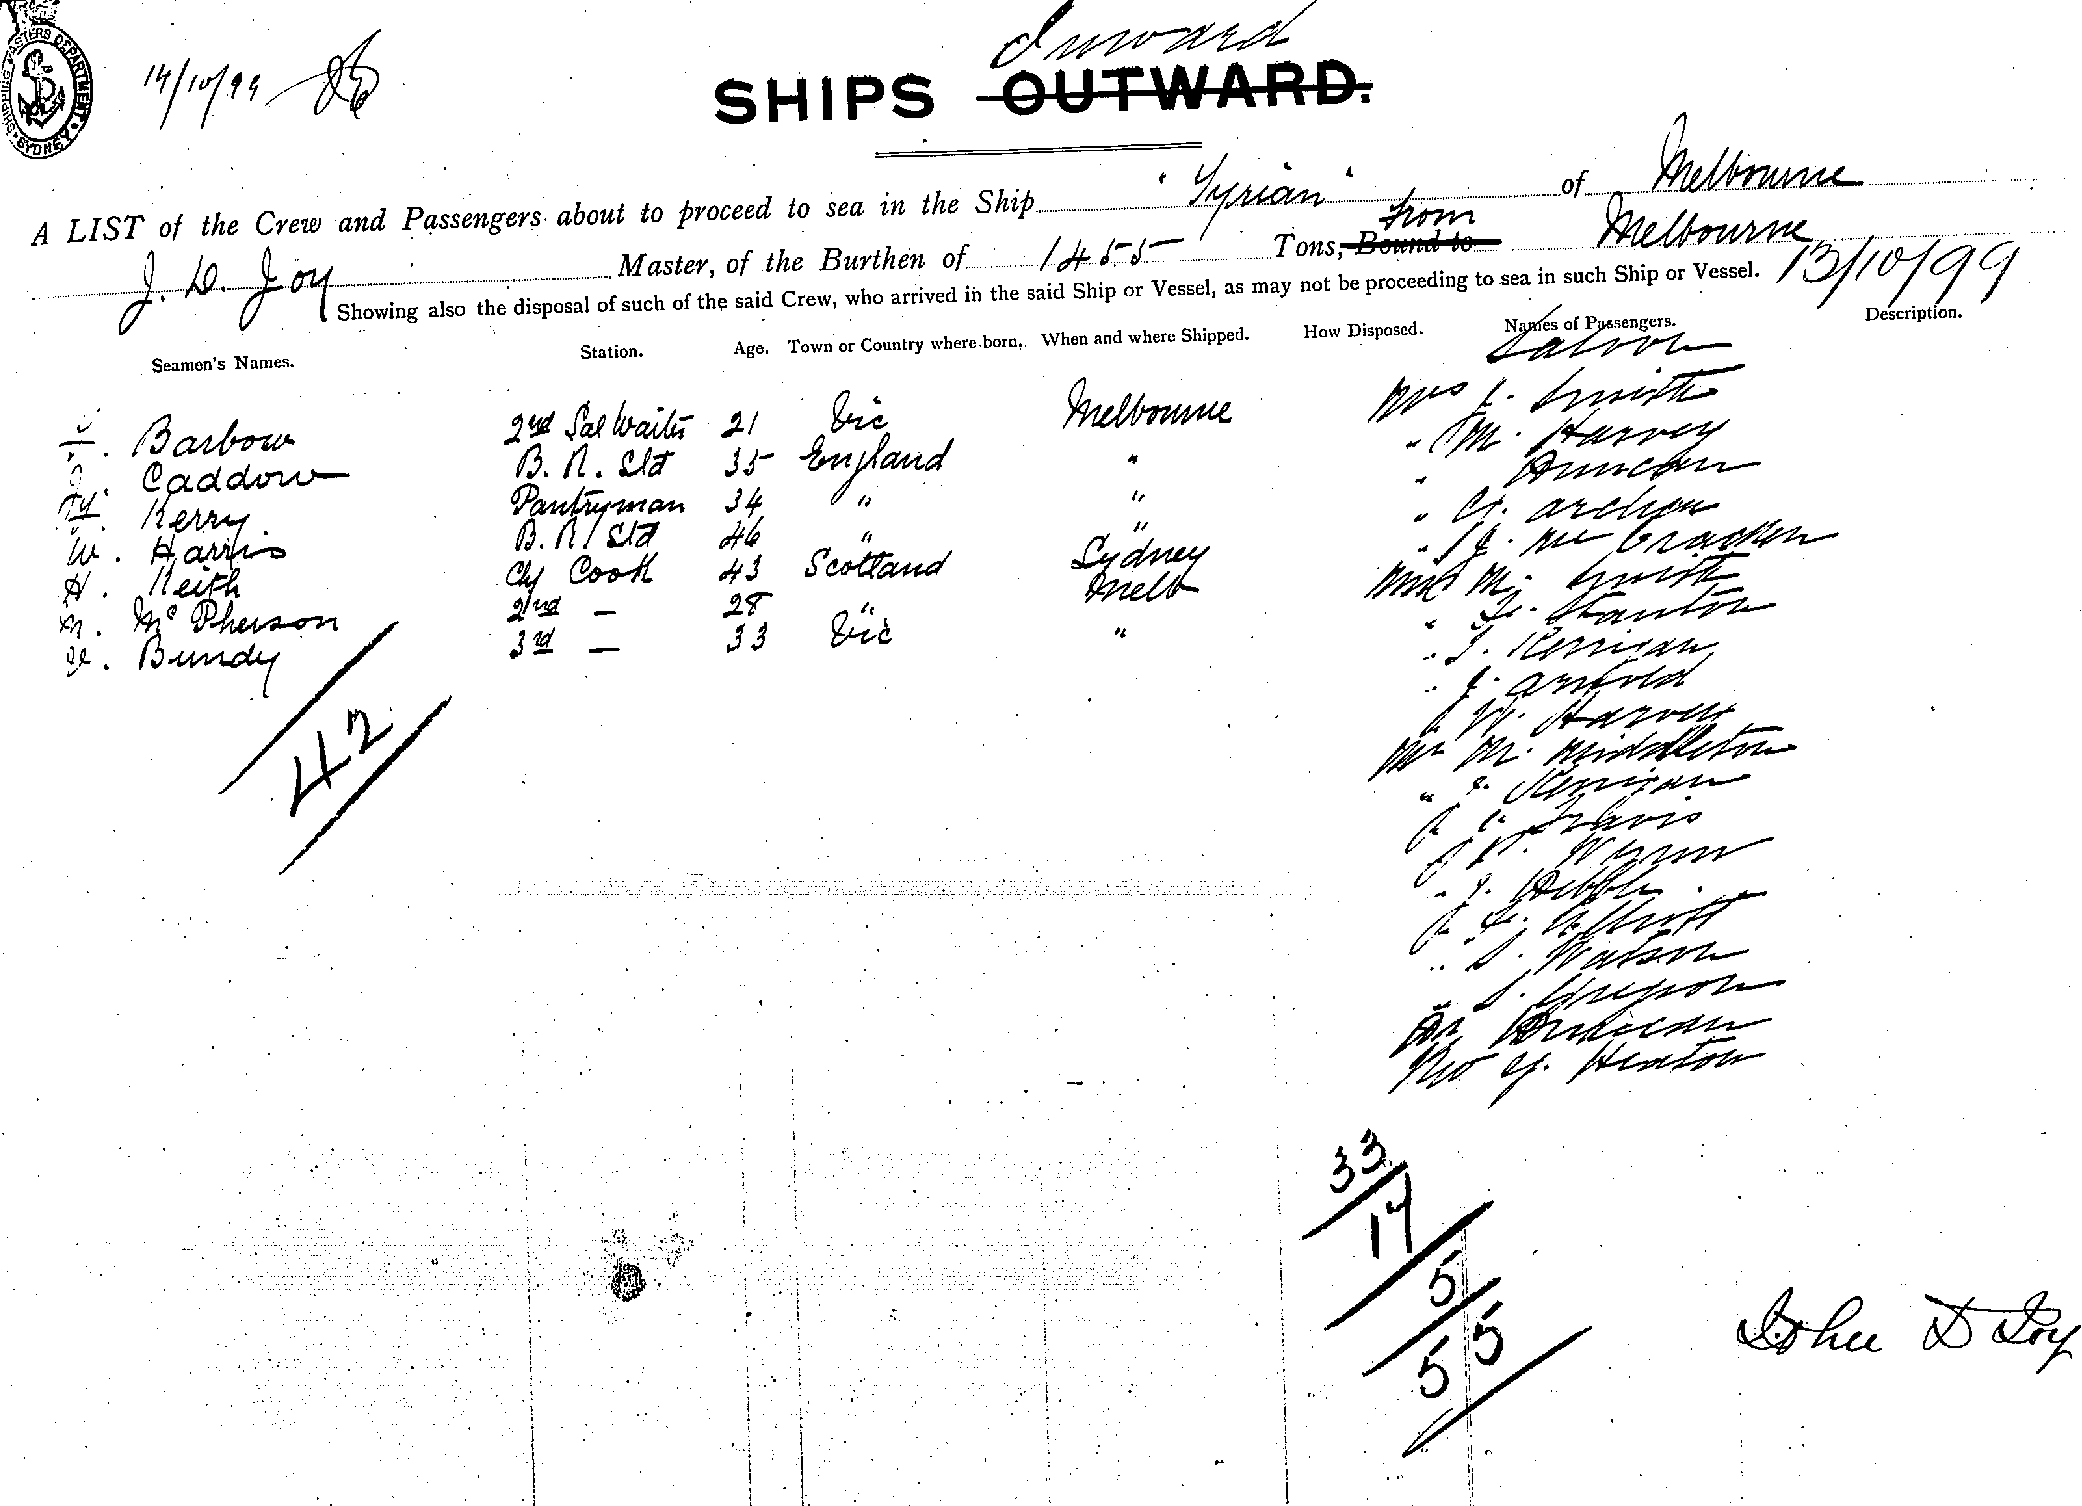 SHIPPING MASTERS DEPARTMENT SYDNEY
14/10/99
Inward
SHIPS OUTWARD.
A LIST of the Crew and Passengers about to proceed to sea in the Ship "Tyrian" of Melbourne
from
J. D. Joy Master, of the Burthen of 1455 Tons, Bound to Melbourne 13/10/99
Showing also the disposal of such of the said Crew, who arrived in the said Ship or Vessel, as may not be proceeding to sea in such Ship or Vessel.
Seamen's Names. Station. Age. Town or Country where born. When and where Shipped. How Disposed. Names of Passengers. Description.
Saloon
Barbow 2nd Sal Waiter 21 Vic Melbourne
Caddow B. R. Std 35 England "
Kerry Pantryman 34 " "
W. Harris B. R. Std 46 " "
H. Keith Ch Cook 43 Scotland Sydney
McPherson 2nd — 28 " Melb
Bundy 3rd — 33 Vic "
42
Mrs J. Smith
" M. Harvey
" Duncan
" Archer
" J. McCracken
Miss M. Smith
" Stanton
" Kerrigan
" J. Arnold
" W. Harvey
Mr M. Middleton
" Kerrigan
" Davis
" Wynn
" J. Hibble
" Elliott
" S. Watson
" S. Gregson
Dr Duncan
Rev Y. Heaton
33
17
5
55
John D Joy